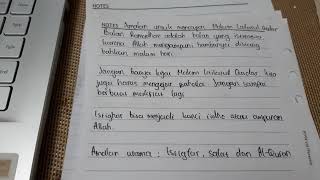 NOTES
NOTES Amalan untuk mencapai Malam Lailatul Qadar
Bulan Ramadhan adalah bulan yang istimewa
karena Allah mengampuni hambanya disiang
bahkan malam hari.
Jangan hanya kejar Malam Lailatul Qadar, kita
juga harus mengejar pahala jangan sampai
berbuat maksiat lagi
Istighar bisa menjadi kunci ridho atau ampunan
Allah.
Amalan utama : Istigfar, salat dan Al-Quran